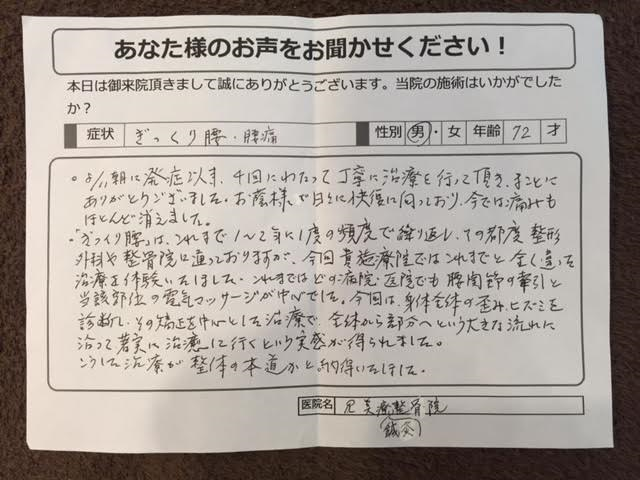 あなた様のお声をお聞かせください！
本日は御来院頂きまして誠にありがとうございます。当院の施術はいかがでした
か？
症状 ぎっくり腰・腰痛 性別 男・女 年齢 72 才
朝に発症以来、4回にわたって丁寧に治療を行って頂き、まことに
ありがとうございました。お蔭様で日々に快復に向っており、今では痛みも
ほとんど消えました。
「ぎっくり腰」は、これまで1〜2年に1度の頻度で繰り返し、その都度 整形
外科や整骨院に通っておりますが、今回貴施療院ではこれまでと全く違った
治療を体験いたしました。これまではどの病院・医院でも腰関節の牽引と
当該部位の電気マッサージが中心でした。今回は、身体全体の歪み、ヒズミを
診断し、その矯正を中心とした治療で、全体から部分へという大きな流れに
沿って着実に治癒に行くという実感が得られました。
こうした治療が整体の本道かと納得いたしました。
医院名 整骨院
鍼灸